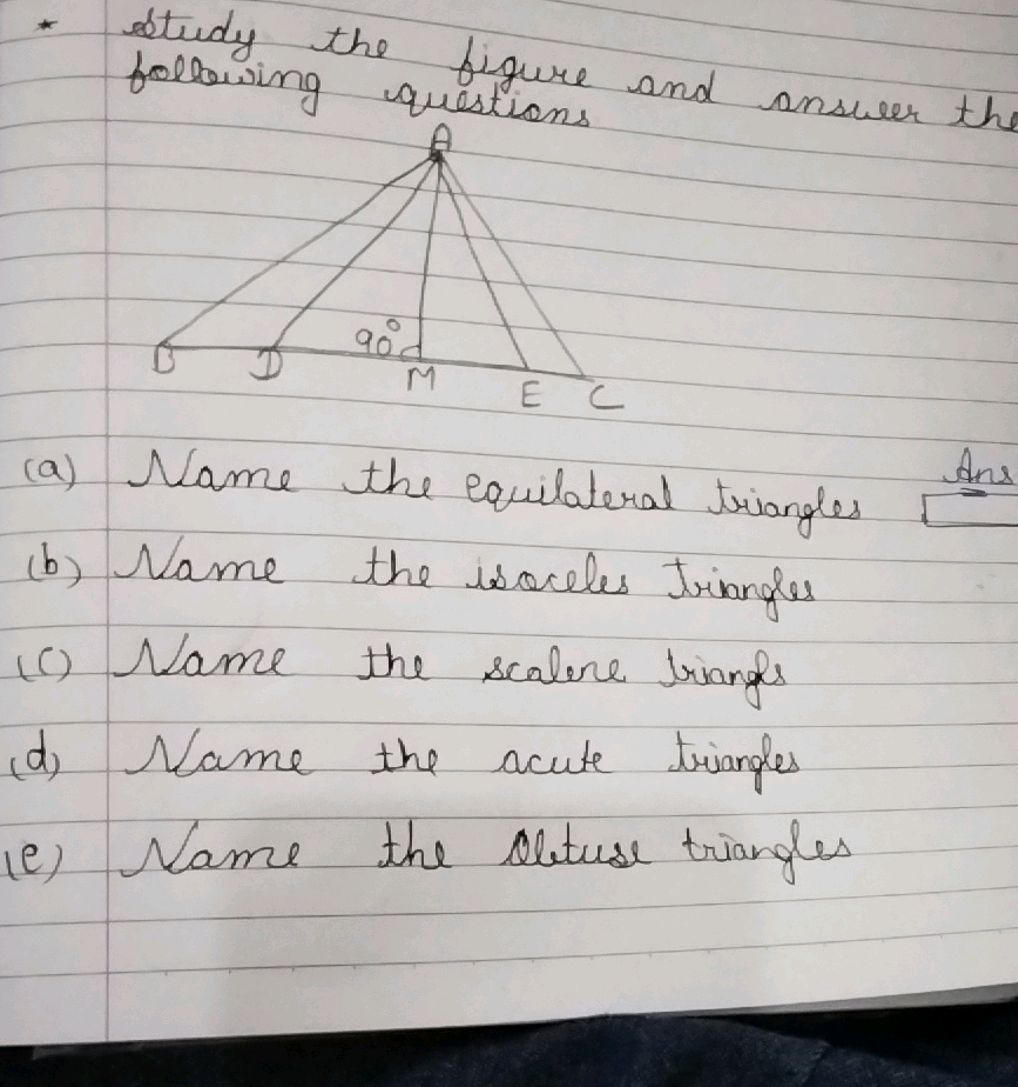 * study the figure and answer the
following questions
A
90°
B D M E C
Ans
(a) Name the equilateral triangles
(b) Name the isoceles Triangles
(c) Name the scalene triangls
(d) Name the acute triangles
(e) Name the Obtuse triangles